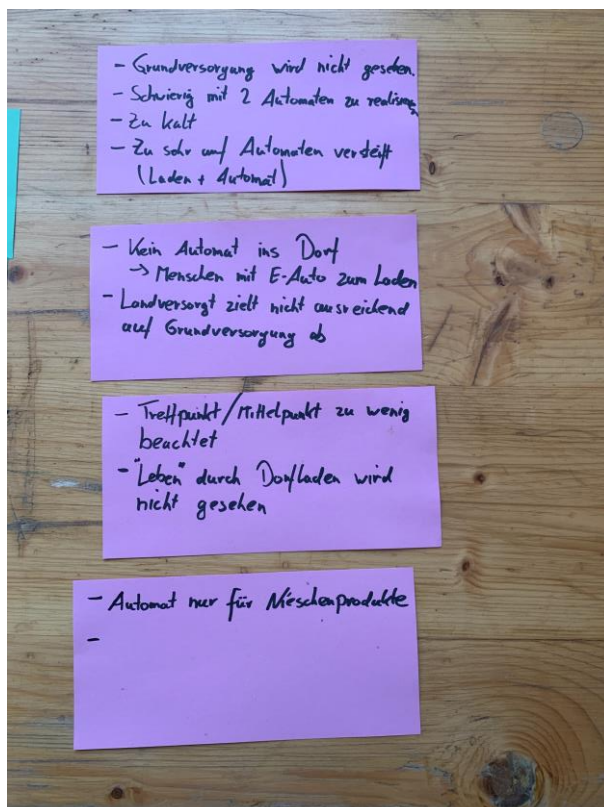 - Grundversorgung wird nicht gesehen.
- Schwierig mit 2 Automaten zu realisieren
- Zu kalt
- Zu sehr auf Automaten versteift
(Laden + Automat)
- Kein Automat ins Dorf
→ Menschen mit E-Auto zum Laden
- Landversorgt zielt nicht ausreichend
auf Grundversorgung ab
- Treffpunkt/Mittelpunkt zu wenig
beachtet
- "Leben" durch Dorfladen wird
nicht gesehen
- Automat nur für Nieschenprodukte
-